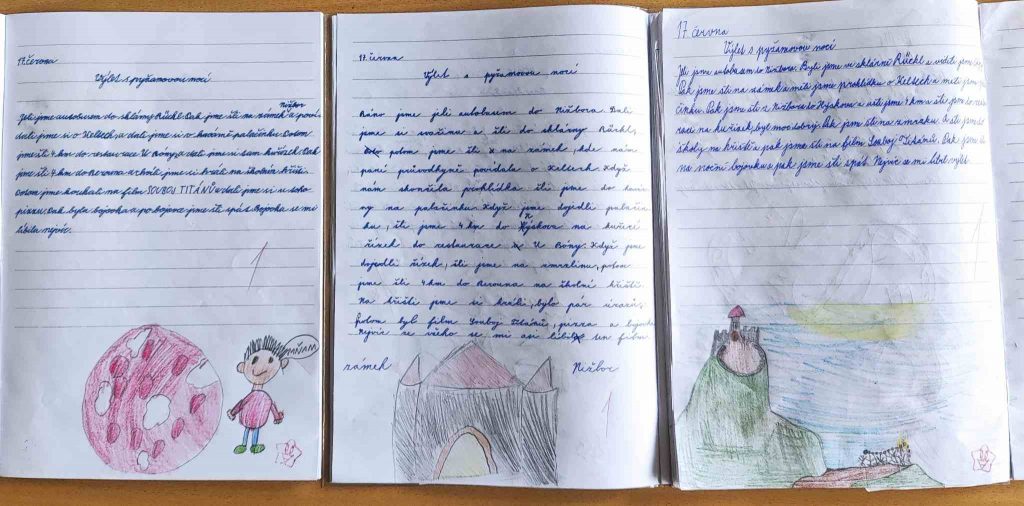 17. června
Výlet s pyžamovou nocí
Nižbor
Jeli jsme autobusem do sklárny Rückl. Pak jsme šli na zámek a poví-
dali jsme si o Keltech, a dali jsme si v kavárně palačinku. Potom
jsme šli 4 km do restaurace U Róny, a dali jsme si tam kuřízek. Pak
jsme šli 4 km do Berouna a chvíli jsme si hráli na školním hřišti.
Potom jsme koukali na film SOUBOJ TITÁNŮ a dali jsme si u toho
pizzu. Pak byla bojovka a po bojovce jsme šli spát. Bojovka se mi
líbila nejvíc.
1
MŇAM
17. června
Výlet s pyžamovou nocí
Ráno jsme jeli autobusem do Nižbora. Dali
jsme si svačinu a šli do sklárny Rückl,
potom jsme šli na zámek, kde nám
paní průvodkyně povídala o Keltech. Když
nám skončila prohlídka šli jsme do kavár-
ny na palačinku. Když jsme dojedli palačin-
ku, šli jsme 4 km do Hýskova na kuřecí
řízek do restaurace U Róny. Když jsme
dojedli řízek, šli jsme na zmrzlinu, potom
jsme šli 4 km do Berouna na školní hřiště.
Na hřišti jsme si hráli, bylo pár úrazů,
potom byl film Souboj Titánů, pizza a bojovka
Nejvíc ze všeho se mi asi líbil ten film
zámek Nižbor
1
17. června
Výlet s pyžamovou nocí
Jeli jsme autobusem do Nižbora. Byli jsme ve sklárně Rückl a viděli jsme
Pak jsme šli na zámek a měli jsme prohlídku o Keltech a měli jsme
činku. Pak jsme šli z Nižbora do Hýskova a ušli jsme 4 km a šli jsme do restau-
race na kuřízek, byl moc dobrý. Pak jsme šli na zmrzku. A šli jsme do
školy na hřiště a pak jsme šli na film Souboj Titánů. Pak jsme šli
na noční bojovku a pak jsme šli spát. Nejvíc se mi líbil výlet.